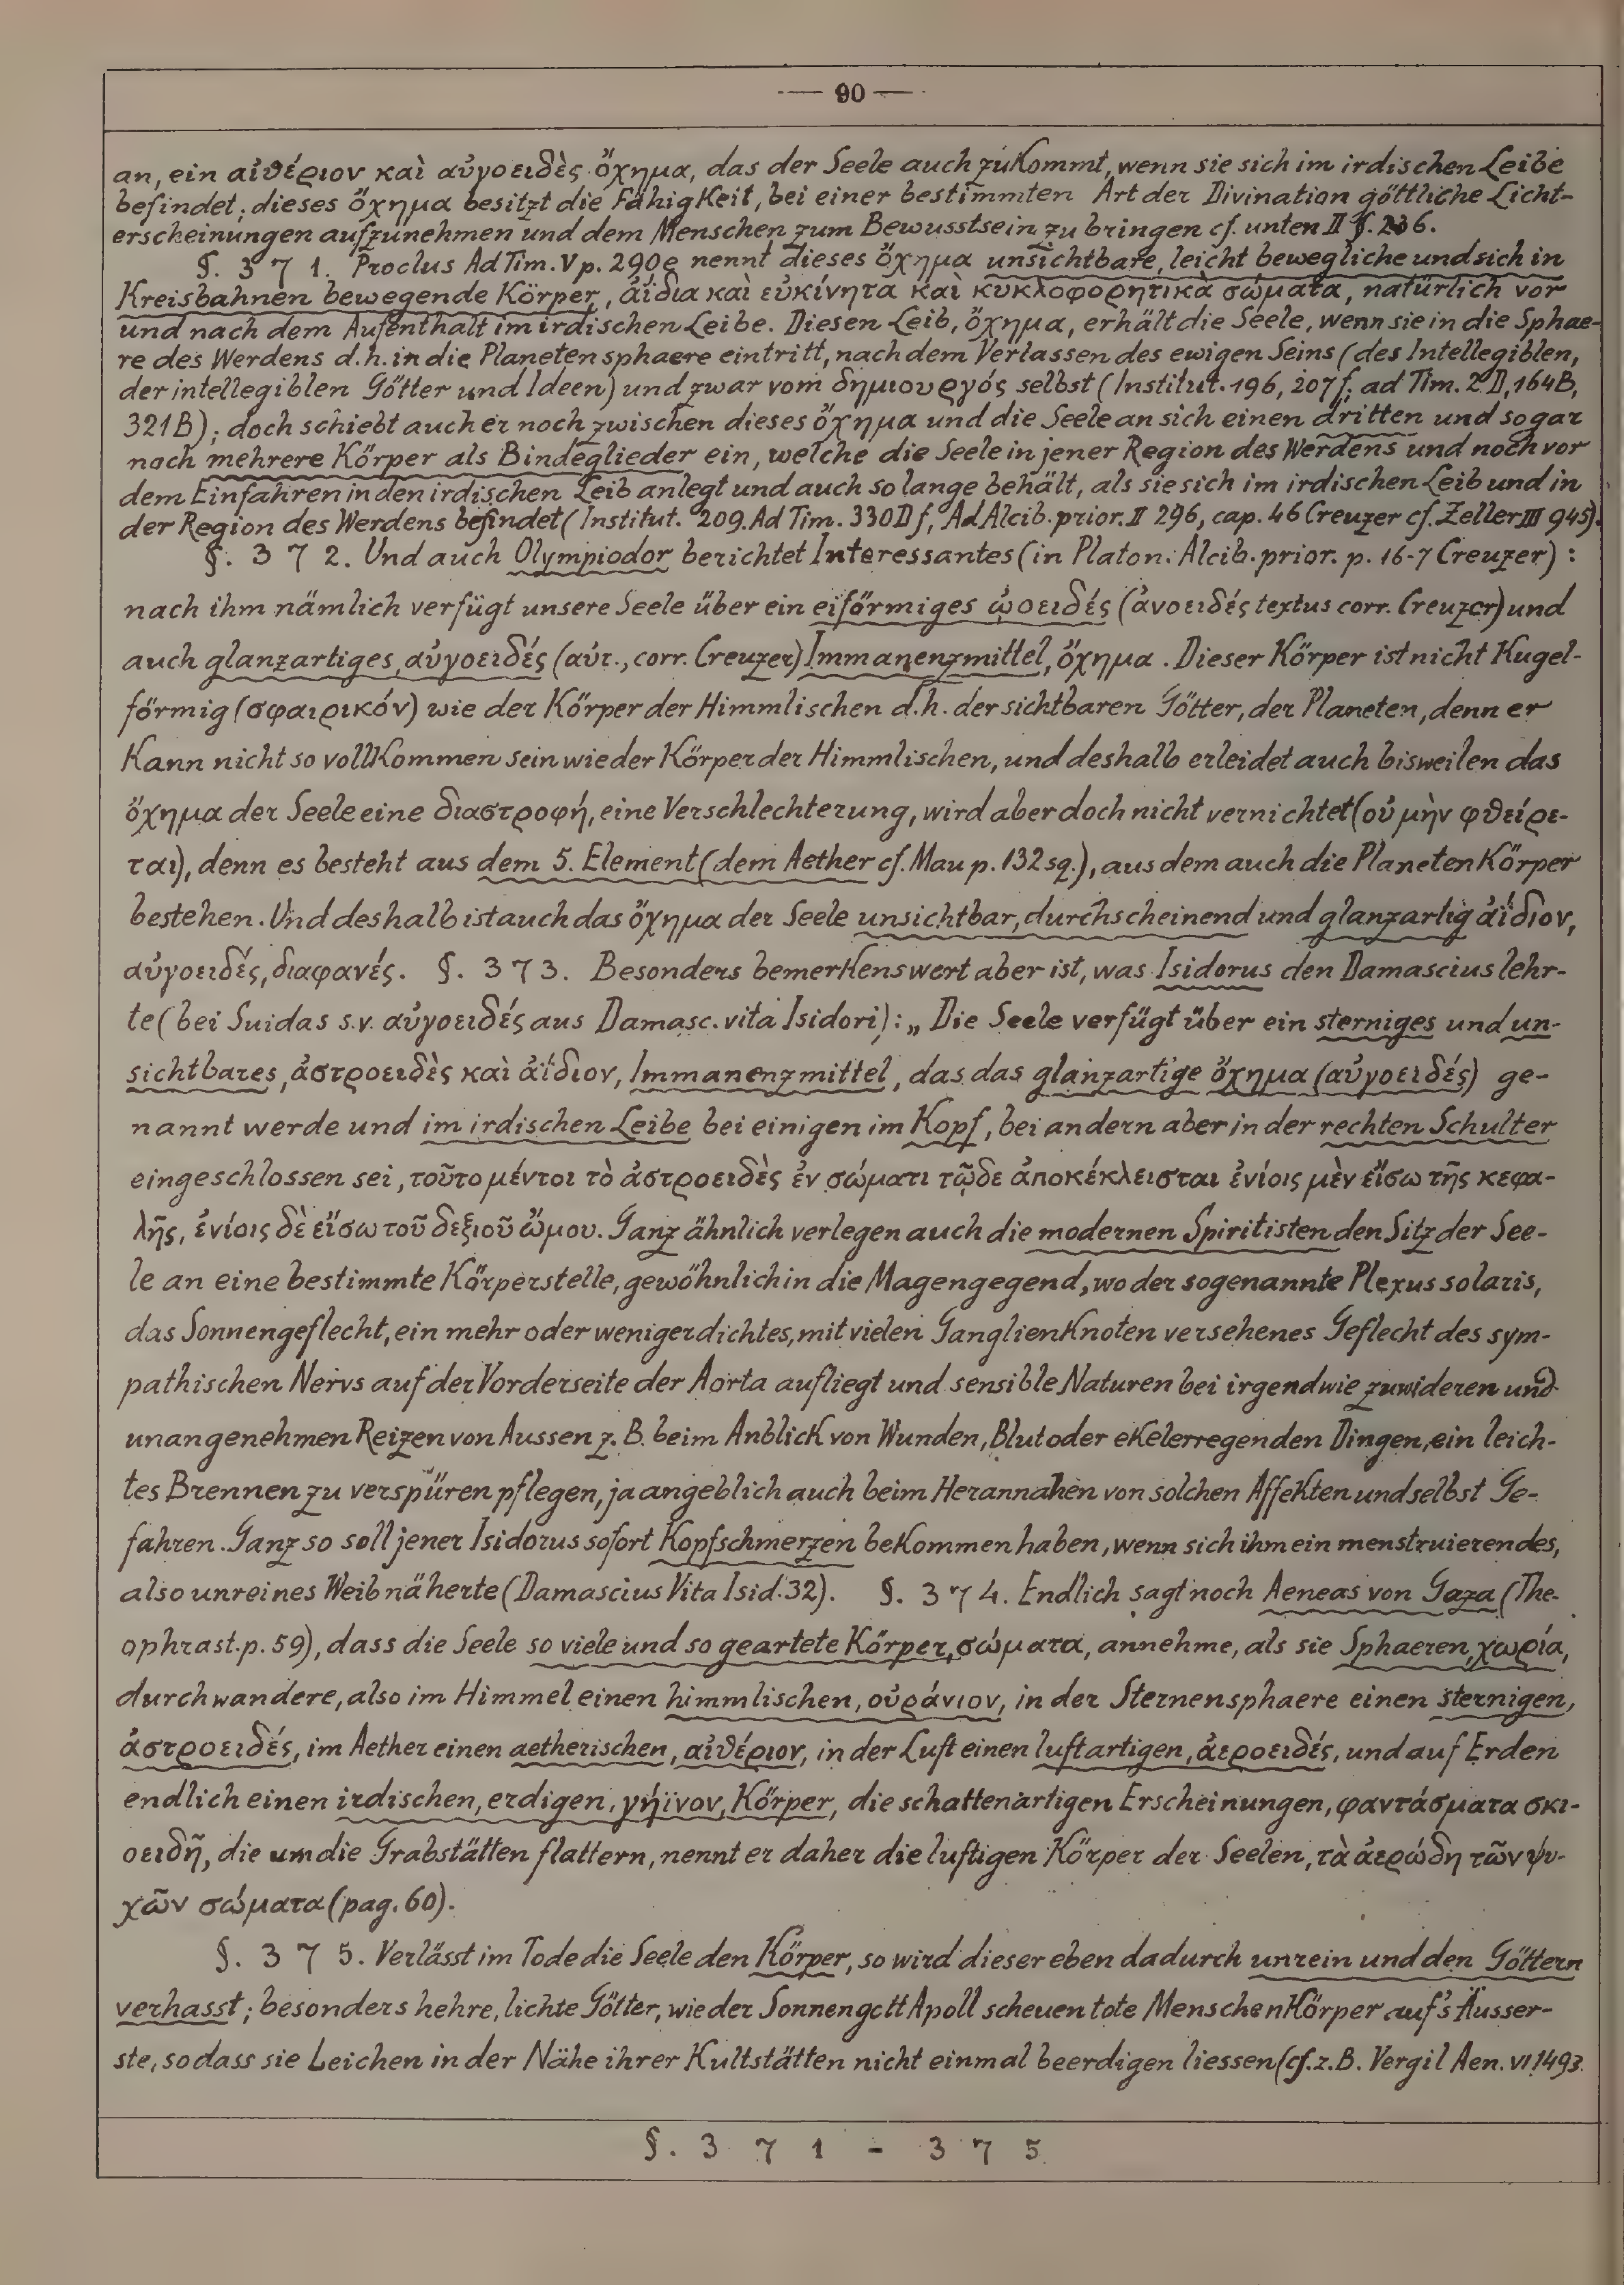 — 90 —
an, ein αἰθέριον καὶ αὐγοειδὲς ὄχημα, das der Seele auch zukommt, wenn sie sich im irdischen Leibe
befindet; dieses ὄχημα besitzt die Fähigkeit, bei einer bestimmten Art der Divination göttliche Licht-
erscheinungen aufzunehmen und dem Menschen zum Bewusstsein zu bringen cf. unten II §. 206.
§. 371. Proclus Ad Tim. V p. 290e nennt dieses ὄχημα unsichtbare, leicht bewegliche und sich in
Kreisbahnen bewegende Körper, ἀΐδια καὶ εὐκίνητα καὶ κυκλοφορητικὰ σώματα, natürlich vor
und nach dem Aufenthalt im irdischen Leibe. Diesen Leib, ὄχημα, erhält die Seele, wenn sie in die Sphae-
re des Werdens d.h. in die Planetensphaere eintritt, nach dem Verlassen des ewigen Seins (des Intellegiblen,
der intellegiblen Götter und Ideen) und zwar vom δημιουργός selbst (Institut. 196, 207 f; ad Tim. 2 D, 164B,
321B); doch schiebt auch er noch zwischen dieses ὄχημα und die Seele an sich einen dritten und sogar
noch mehrere Körper als Bindeglieder ein, welche die Seele in jener Region des Werdens und noch vor
dem Einfahren in den irdischen Leib anlegt und auch so lange behält, als sie sich im irdischen Leib und in
der Region des Werdens befindet (Institut. 209. Ad Tim. 330D f, Ad Alcib. prior. II 296, cap. 46 Creuzer cf. Zeller III 945).
§. 372. Und auch Olympiodor berichtet Interessantes (in Platon. Alcib. prior. p. 16-7 Creuzer):
nach ihm nämlich verfügt unsere Seele über ein eiförmiges ὠοειδές (ἀνοειδές textus corr. Creuzer) und
auch glanzartiges, αὐγοειδές (αὐτ., corr. Creuzer) Immanenzmittel, ὄχημα. Dieser Körper ist nicht kugel-
förmig (σφαιρικόν) wie der Körper der Himmlischen d.h. der sichtbaren Götter, der Planeten, denn er
kann nicht so vollkommen sein wie der Körper der Himmlischen, und deshalb erleidet auch bisweilen das
ὄχημα der Seele eine διαστροφή, eine Verschlechterung, wird aber doch nicht vernichtet (οὐ μὴν φθείρε-
ται), denn es besteht aus dem 5. Element (dem Aether cf. Mau p. 132 sq.), aus dem auch die Planetenkörper
bestehen. Und deshalb ist auch das ὄχημα der Seele unsichtbar, durchscheinend und glanzartig ἀΐδιον,
αὐγοειδές, διαφανές. §. 373. Besonders bemerkenswert aber ist, was Isidorus den Damascius lehr-
te (bei Suidas s.v. αὐγοειδές aus Damasc. vita Isidori): „Die Seele verfügt über ein sterniges und un-
sichtbares, ἀστροειδὲς καὶ ἀΐδιον, Immanenzmittel, das das glanzartige ὄχημα (αὐγοειδές) ge-
nannt werde und im irdischen Leibe bei einigen im Kopf, bei andern aber in der rechten Schulter
eingeschlossen sei, τοῦτο μέντοι τὸ ἀστροειδὲς ἐν σώματι τῷδε ἀποκέκλεισται ἐνίοις μὲν εἴσω τῆς κεφα-
λῆς, ἐνίοις δὲ εἴσω τοῦ δεξιοῦ ὤμου. Ganz ähnlich verlegen auch die modernen Spiritisten den Sitz der See-
le an eine bestimmte Körperstelle, gewöhnlich in die Magengegend, wo der sogenannte Plexus solaris,
das Sonnengeflecht, ein mehr oder weniger dichtes, mit vielen Ganglienknoten versehenes Geflecht des sym-
pathischen Nervs auf der Vorderseite der Aorta aufliegt und sensible Naturen bei irgendwie zuwideren und
unangenehmen Reizen von Aussen z. B. beim Anblick von Wunden, Blut oder ekelerregenden Dingen, ein leich-
tes Brennen zu verspüren pflegen, ja angeblich auch beim Herannahen von solchen Affekten und selbst Ge-
fahren. Ganz so soll jener Isidorus sofort Kopfschmerzen bekommen haben, wenn sich ihm ein menstruierendes,
also unreines Weib näherte (Damascius Vita Isid. 32). §. 374. Endlich sagt noch Aeneas von Gaza (The-
ophrast. p. 59), dass die Seele so viele und so geartete Körper, σώματα, annehme, als sie Sphaeren, χωρία,
durchwandere, also im Himmel einen himmlischen, οὐράνιον, in der Sternensphaere einen sternigen,
ἀστροειδές, im Aether einen aetherischen, αἰθέριον, in der Luft einen luftartigen, ἀεροειδές, und auf Erden
endlich einen irdischen, erdigen, γήϊνον, Körper, die schattenartigen Erscheinungen, φαντάσματα σκι-
οειδῆ, die um die Grabstätten flattern, nennt er daher die luftigen Körper der Seelen, τὰ ἀερώδη τῶν ψυ-
χῶν σώματα (pag. 60).
§. 375. Verlässt im Tode die Seele den Körper, so wird dieser eben dadurch unrein und den Göttern
verhasst; besonders hehre, lichte Götter, wie der Sonnengott Apoll scheuen tote Menschenkörper auf's Äusser-
ste, sodass sie Leichen in der Nähe ihrer Kultstätten nicht einmal beerdigen liessen (cf. z.B. Vergil Aen. VI 1493.
§. 371 - 375